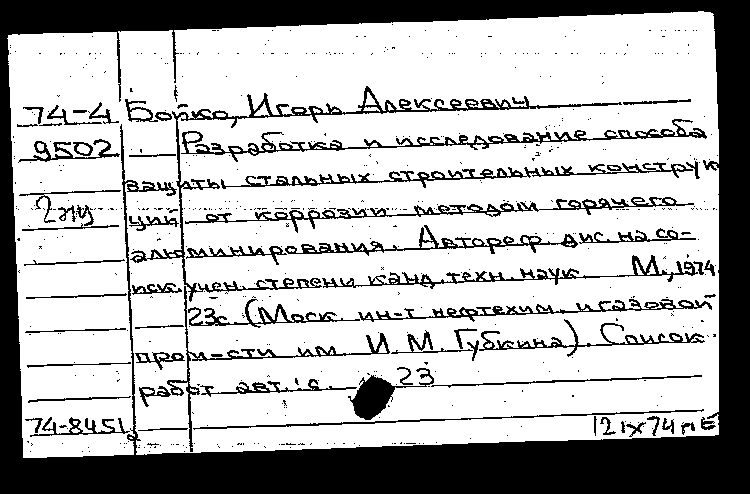 74-4 Бойко, Игорь Алексеевич
9502 Разработка и исследование способа
защиты стальных строительных конструк
ций от коррозии методом горячего
алюминирования. Автореф. дис. на со-
иск. учен. степени канд. техн. наук М., 1974.
23с. (Моск. ин-т нефтехим. и газовой
пром-сти им. И. М. Губкина). Список
работ авт.: с. 23
74-8451